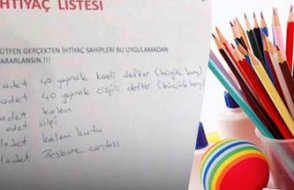 HTİYAÇ LİSTESİ
ÜTFEN GERÇEKTEN İHTİYAÇ SAHİPLERİ BU UYGULAMADAN
ARARLANSIN !!!
adet 40 yaprak kareli defter (büyük boy)
adet 40 yaprak çizgili defter (küçük boy)
adet kalem
adet silgi
adet kalem kutu
adet Beslenme çantası